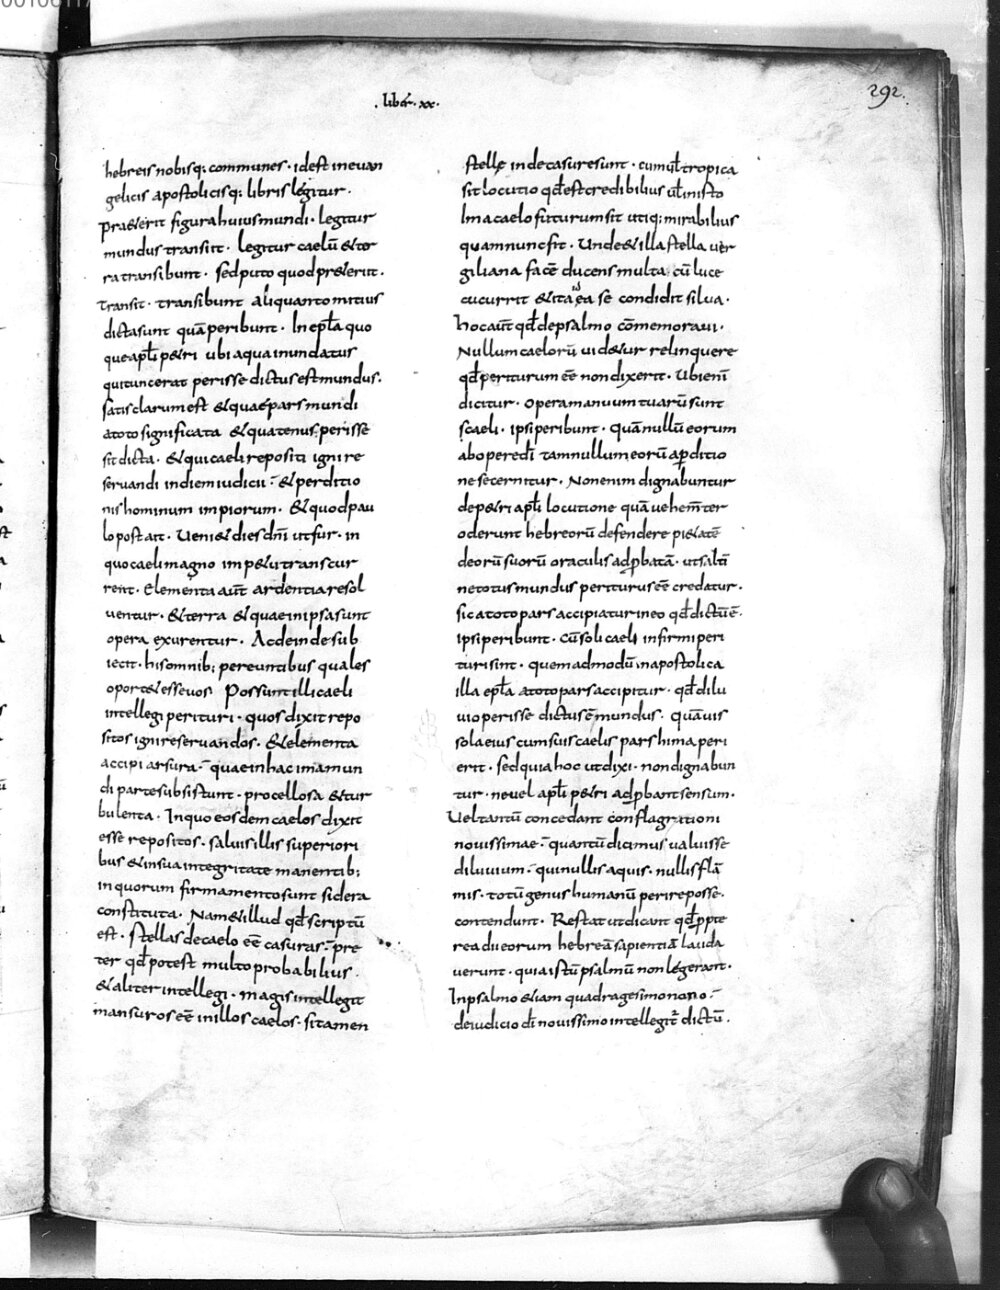 00106117
. liber . xx .
292.
hebreis nobisq; communes · idest ineuan
gelicis apostolicisq; libris legitur ·
praeterit figura huius mundi · legitur
mundus transiit · legitur caelū &ter
ra transibunt · sed puto quod pr&erit ·
transit · transibunt aliquanto mitius
dicta sunt quā peribunt · In epła quo
que apłi p&ri ubi aqua inundatus
qui tunc erat perisse dictus est mundus ·
satis clarum est &quae pars mundi
atoto significata &quatenus perisse
sit dicta · &qui caeli repositi igni re
seruandi indiem iudicii · &perditio
nis hominum impiorum · &quod pau
lo post ait · Ueni& dies dn̄i ut fur · in
quo caeli magno imp&u transcur
rent · Elementa aūt ardentia resol
uentur · &terra &quae inipsa sunt
opera exurentur · Ac deinde sub
iecit · his omnib; pereuntibus quales
oport& esse uos Possunt illi caeli
intellegi perituri · quos dixit repo
sitos igni reseruandos · &elementa
accipi arsura · quae in hac ima mun
di parte subsistunt · procellosa &tur
bulenta · In quo eosdem caelos dixit
esse repositos · saluis illis superiori
bus &insua integritate manentib;
in quorum firmamento sunt sidera
constituta · Nam &illud qđ scriptū
est · Stellas de caelo eē casuras · pre
ter qđ potest multo probabilius
&aliter intellegi · magis intellegit
mansuros eē in illos caelos · si tamen
stellę inde casure sunt · cum uł tropica
sit locutio qđ est credibilius uł in isto
Ima caelo futurum sit utiq; mirabilius
quam nunc fit · Unde &illa stella uer
giliana facē ducens multa cū luce
cucurrit &ita ea se condidit silua ·
hoc aūt qđ de psalmo cōmemoraui ·
Nullum caelorū uid&ur relinquere
qđ periturum eē non dixerit · Ubi enī
dicitur · opera manuum tuarū sunt
scaeli · ipsi peribunt · quā nullū eorum
ab opere dī tam nullum eorū ap̄ditio
ne secernitur · Non enim dignabuntur
de p&ri apłi locutione quā uehem̄ter
oderunt hebreorū defendere pi&atē
deorū suorū oraculis adp̄batā · ut saltī
ne totus mundus periturus eē credatur ·
sic a toto pars accipiatur in eo qđ dictū ē ·
ipsi peribunt · cū soli caeli infirmi peri
turi sint · quem admodū in apostolica
illa epła atoto pars accipitur · qđ dilu
uio perisse dictus ē mundus · quāuis
sola eius cum suis caelis pars hima peri
erit · sed quia hoc ut dixi · non dignabun
tur · ne uel apłi p&ri adp̄bant sensum ·
Uel tantū concedant conflagrationi
nouissimae · quantū dicimus ualuisse
diluuium · qui nullis aquis · nullis flā
mis · totū genus humanū perire posse ·
contendunt · Restat ut dicant qđ p̄pte
rea dii eorum hebreā sapientiā lauda
uerunt · quia istū psalmū non legerant ·
In psalmo &iam quadragesimo nono ·
de iudicio dī nouissimo intellegit̄ dictū ·